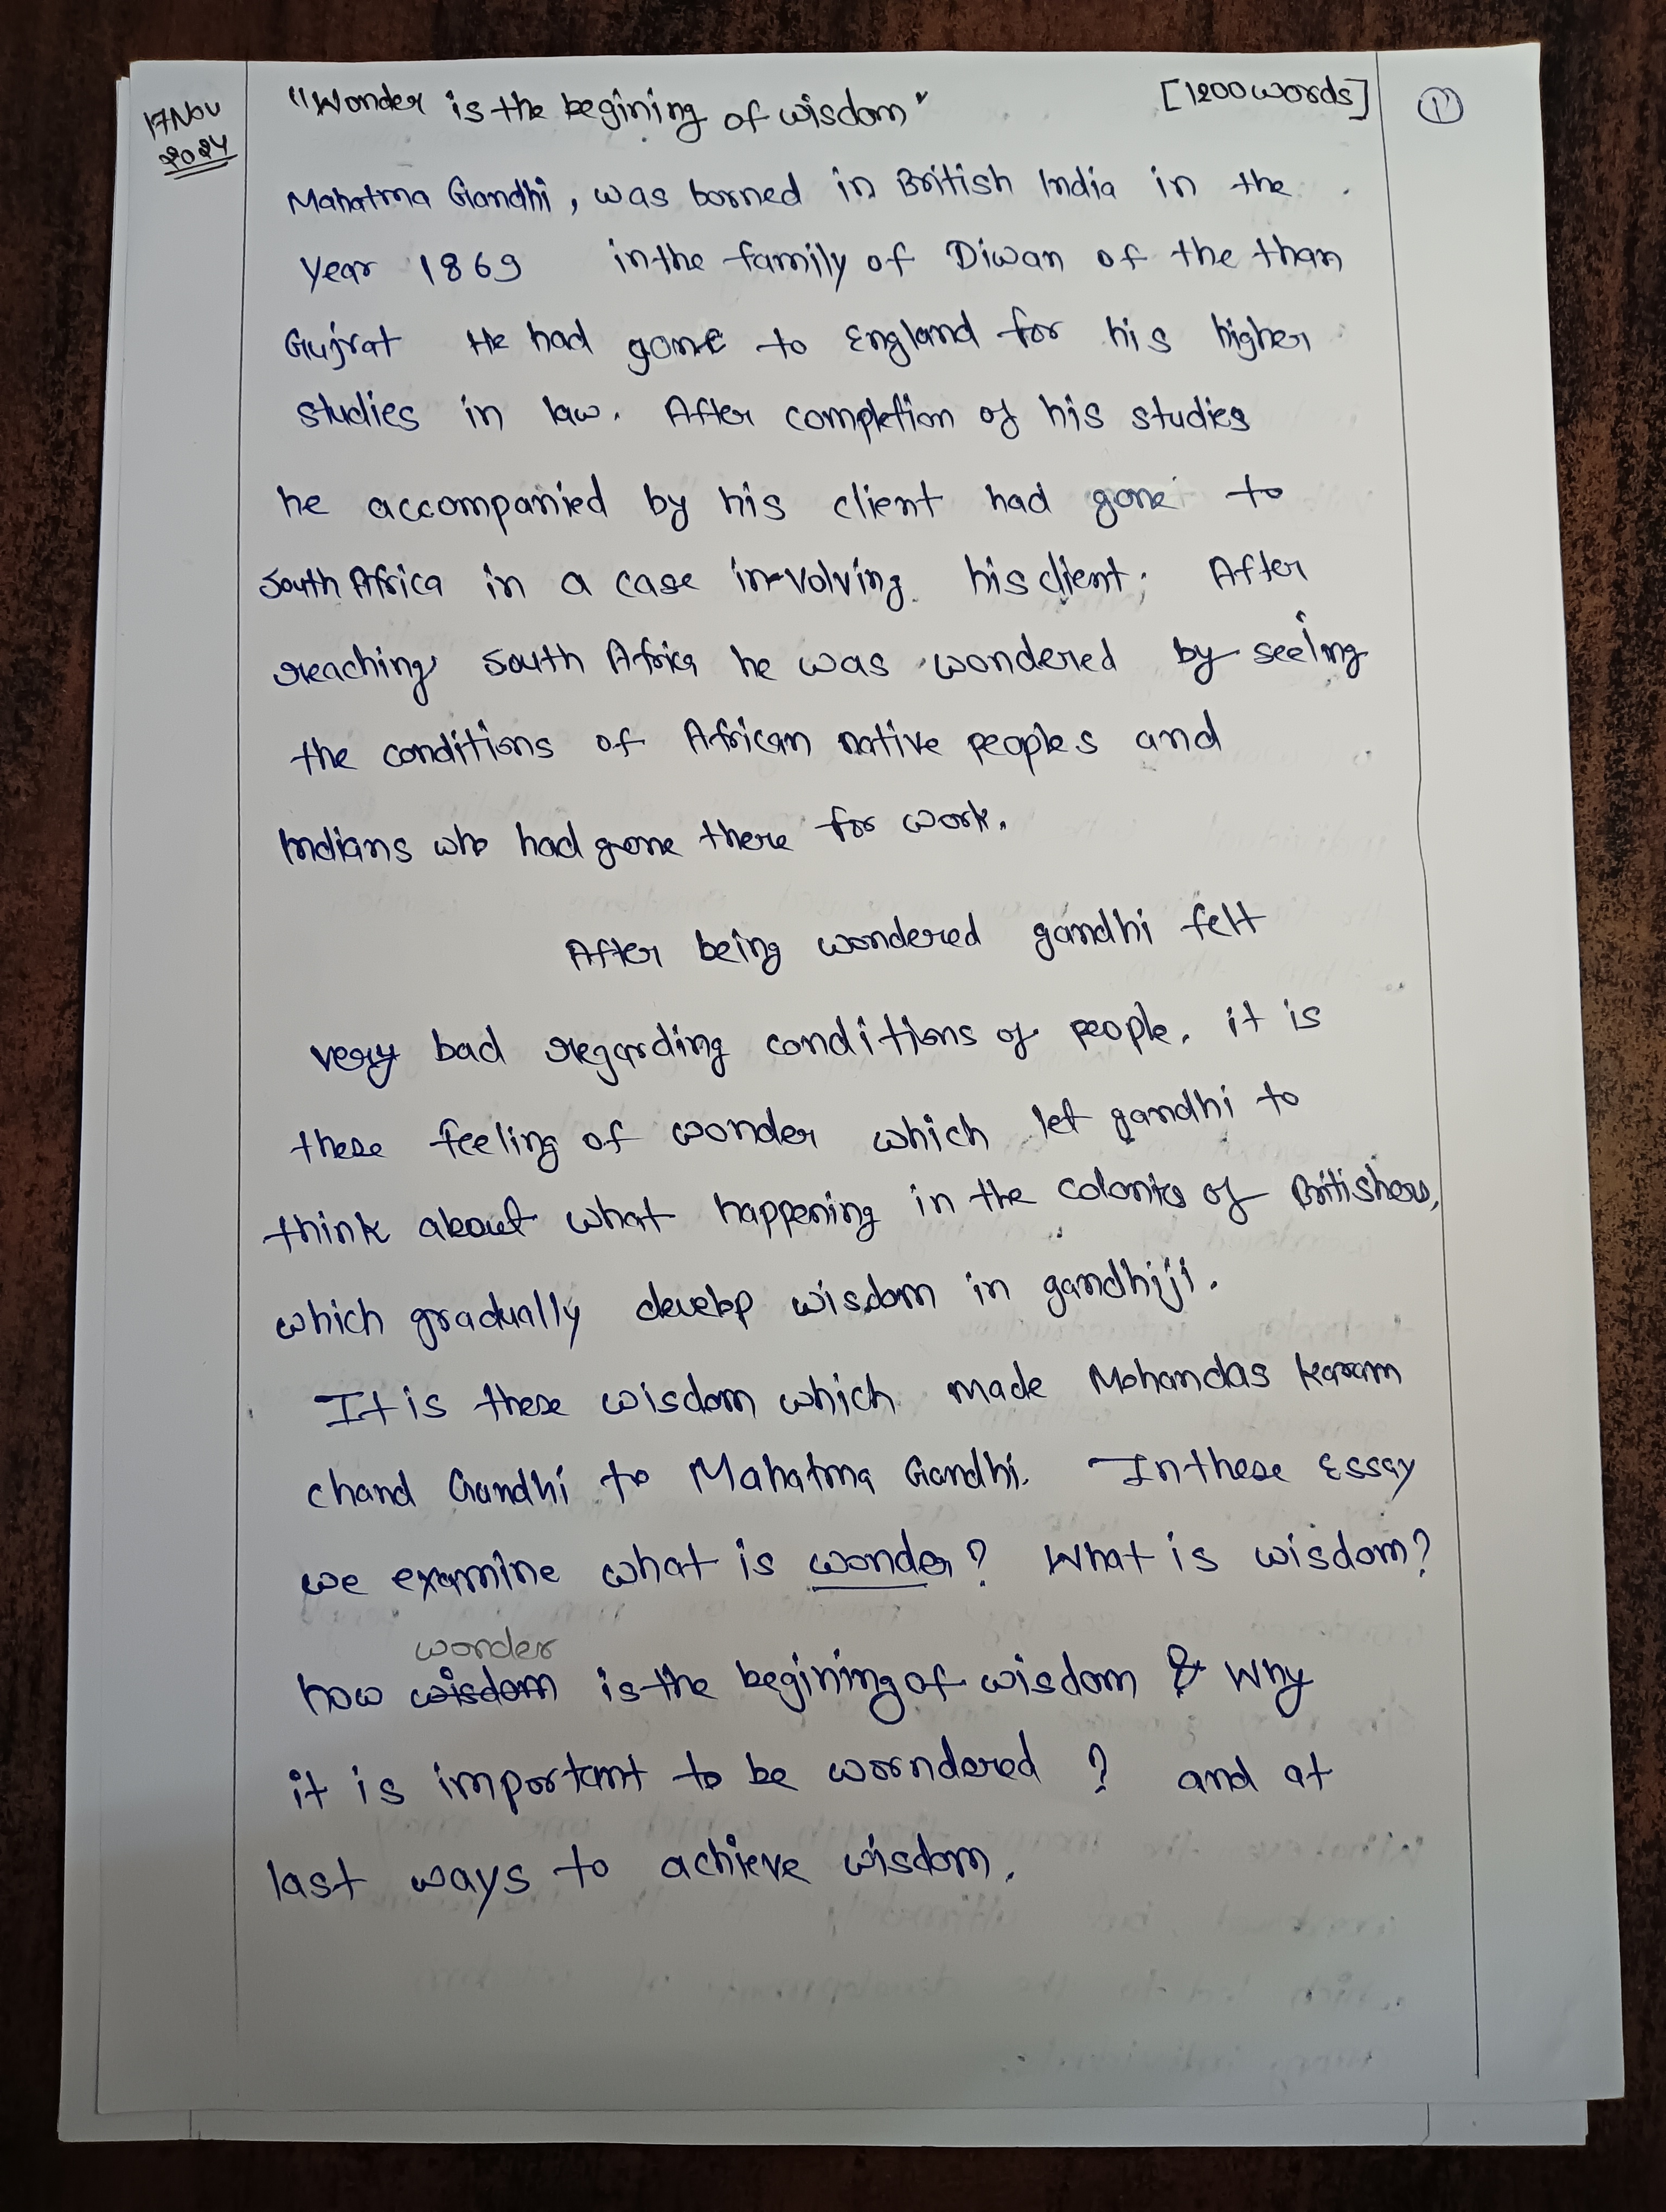 17 Nov
2024
"Wonder is the begining of wisdom" [1200 words] 1
Mahatma Gandhi, was borned in British India in the
year 1869 in the family of Diwan of the than
Gujrat He had gone to England for his higher
studies in law. After completion of his studies
he accompanied by his client had gone to
South Africa in a case in-volving his client. After
reaching South Africa he was wondered by seeing
the conditions of African native peoples and
Indians who had gone there for work.
After being wondered gandhi felt
very bad regarding conditions of people. it is
these feeling of wonder which let gandhi to
think about what happening in the colonies of Britishers,
which gradually develop wisdom in gandhiji.
It is these wisdom which made Mohandas Karam
chand Gandhi to Mahatma Gandhi. In these Essay
we examine what is wonder? What is wisdom?
wonder
how wisdom is the begining of wisdom & Why
it is important to be woorndered ? and at
last ways to achieve wisdom.